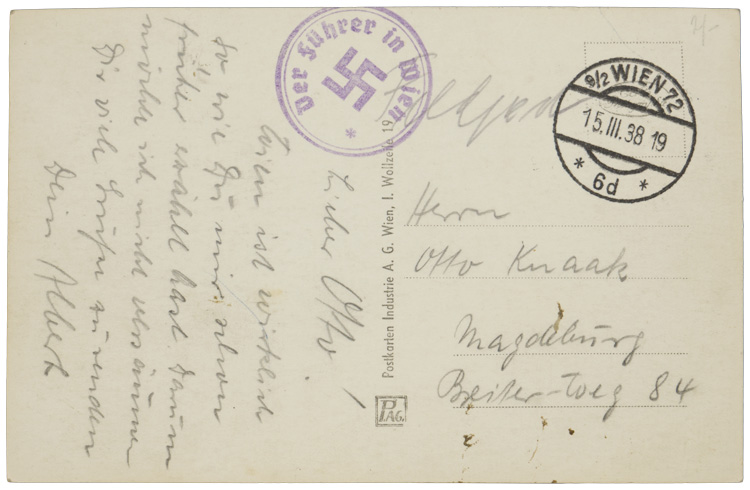 Der Führer in Wien
Feldpost
9/2 WIEN 72
15.III.38 19
* 6d *
2/-
Lieber Otto!
Wien ist wirklich
so wie Du mir schon
früher erzählt hast. Darum
möchte ich nicht versäumen
Dir viele Grüße zu senden
Dein Albert
Postkarten Industrie A. G. Wien, I. Wollzeile 19
PAG.
Herrn
Otto Knaak
Magdeburg
Breiter-Weg 84